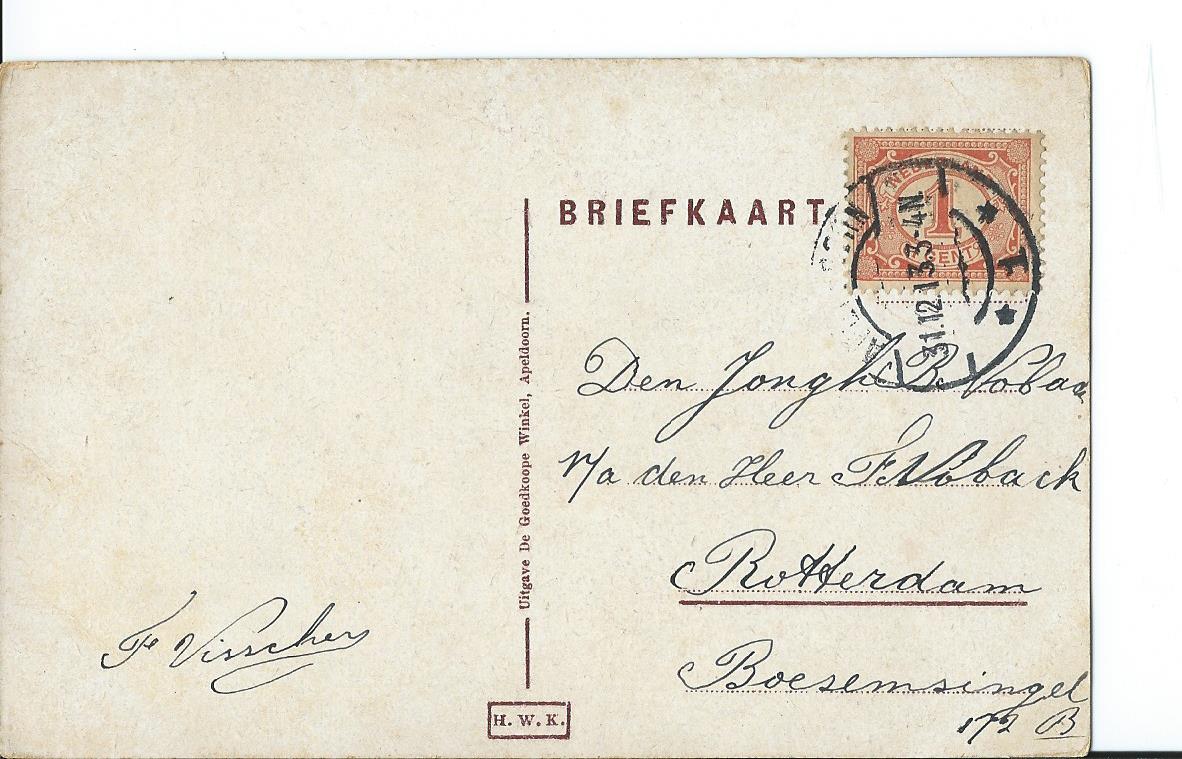 BRIEFKAART
NEDERLAND
1
CENT
31.12.13.3-4N
1
Den Jongh B. Vobac
p/a den Heer F. Voback
Rotterdam
Boezemsingel
172 B
F Visschers
Uitgave De Goedkoope Winkel, Apeldoorn.
H. W. K.